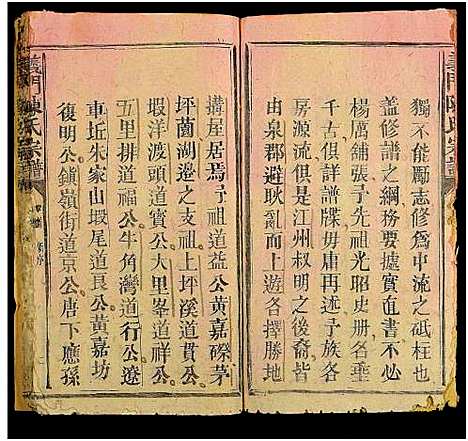 義門陳氏宗譜
獨不能勵志修爲中流之砥柱也
蓋修譜之綱務要墟實直書不必
楊厲舖張予先祖光昭史册各垂
千古俱詳譜牒毋庸再述予族各
房源流俱是江州叔明之後裔皆
由泉郡避耿亂而上遊各擇勝地
搆屋居焉予祖道益公黃嘉磜茅
坪蘭湖邊之支祖上坪溪道貫公
塅洋渡頭道賓公大里峯道祥公
五里排道福公牛角灣道行公遼
車坵朱家山塅尾道艮公黃嘉坊
復明公鎮嶺街道京公唐下應孫
義門陳氏宗譜